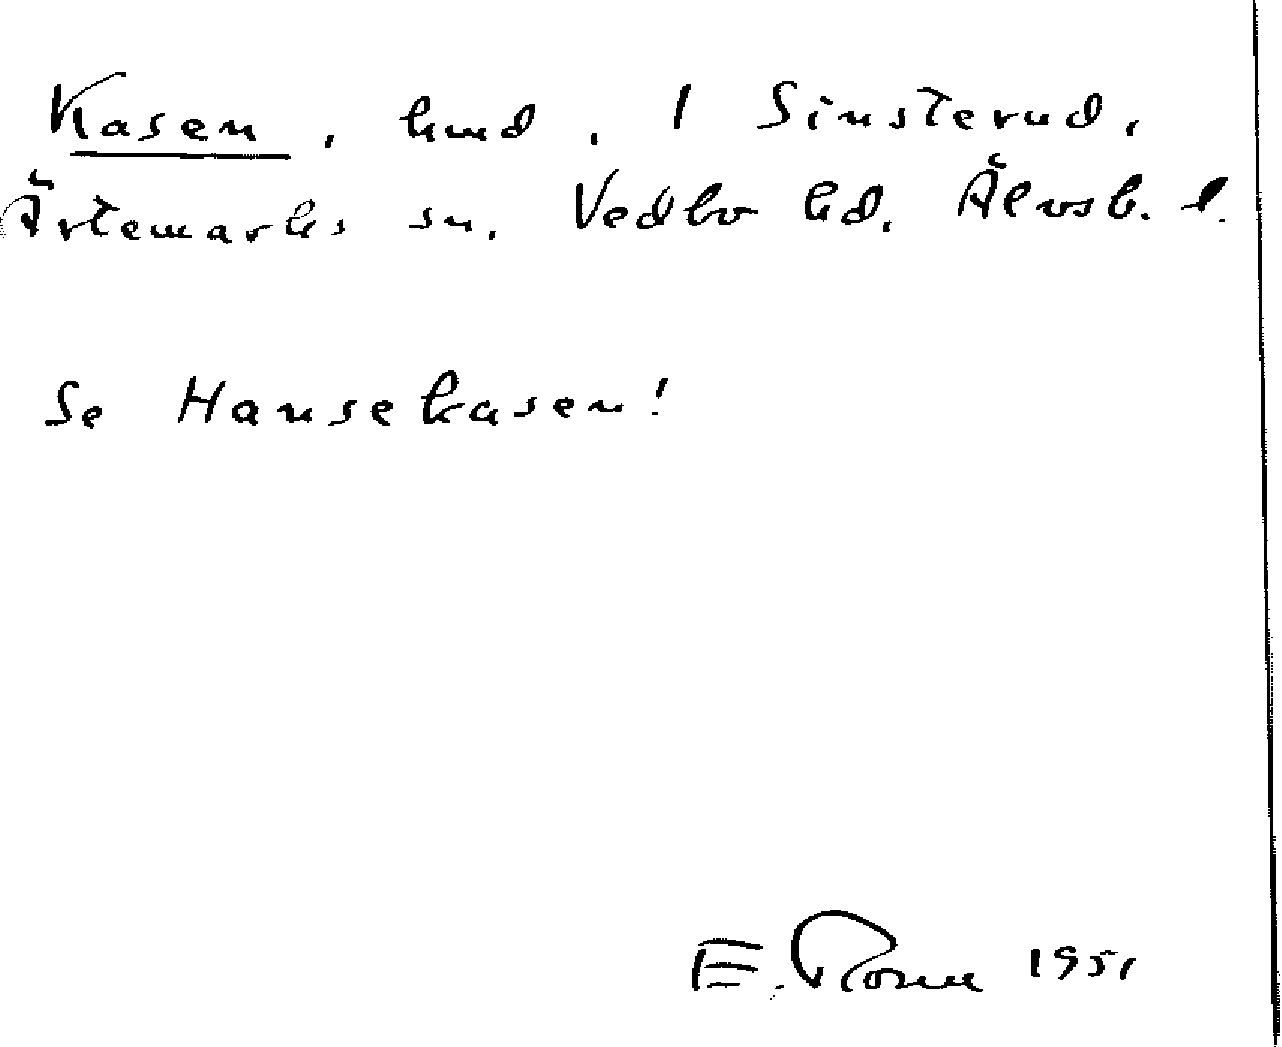 Kasen, hmd, 1 Sinsterud,
Ärtemarks sn. Vedbo hd. Älvsb. l.
Se Hansekasen!
E. Rosén 1951